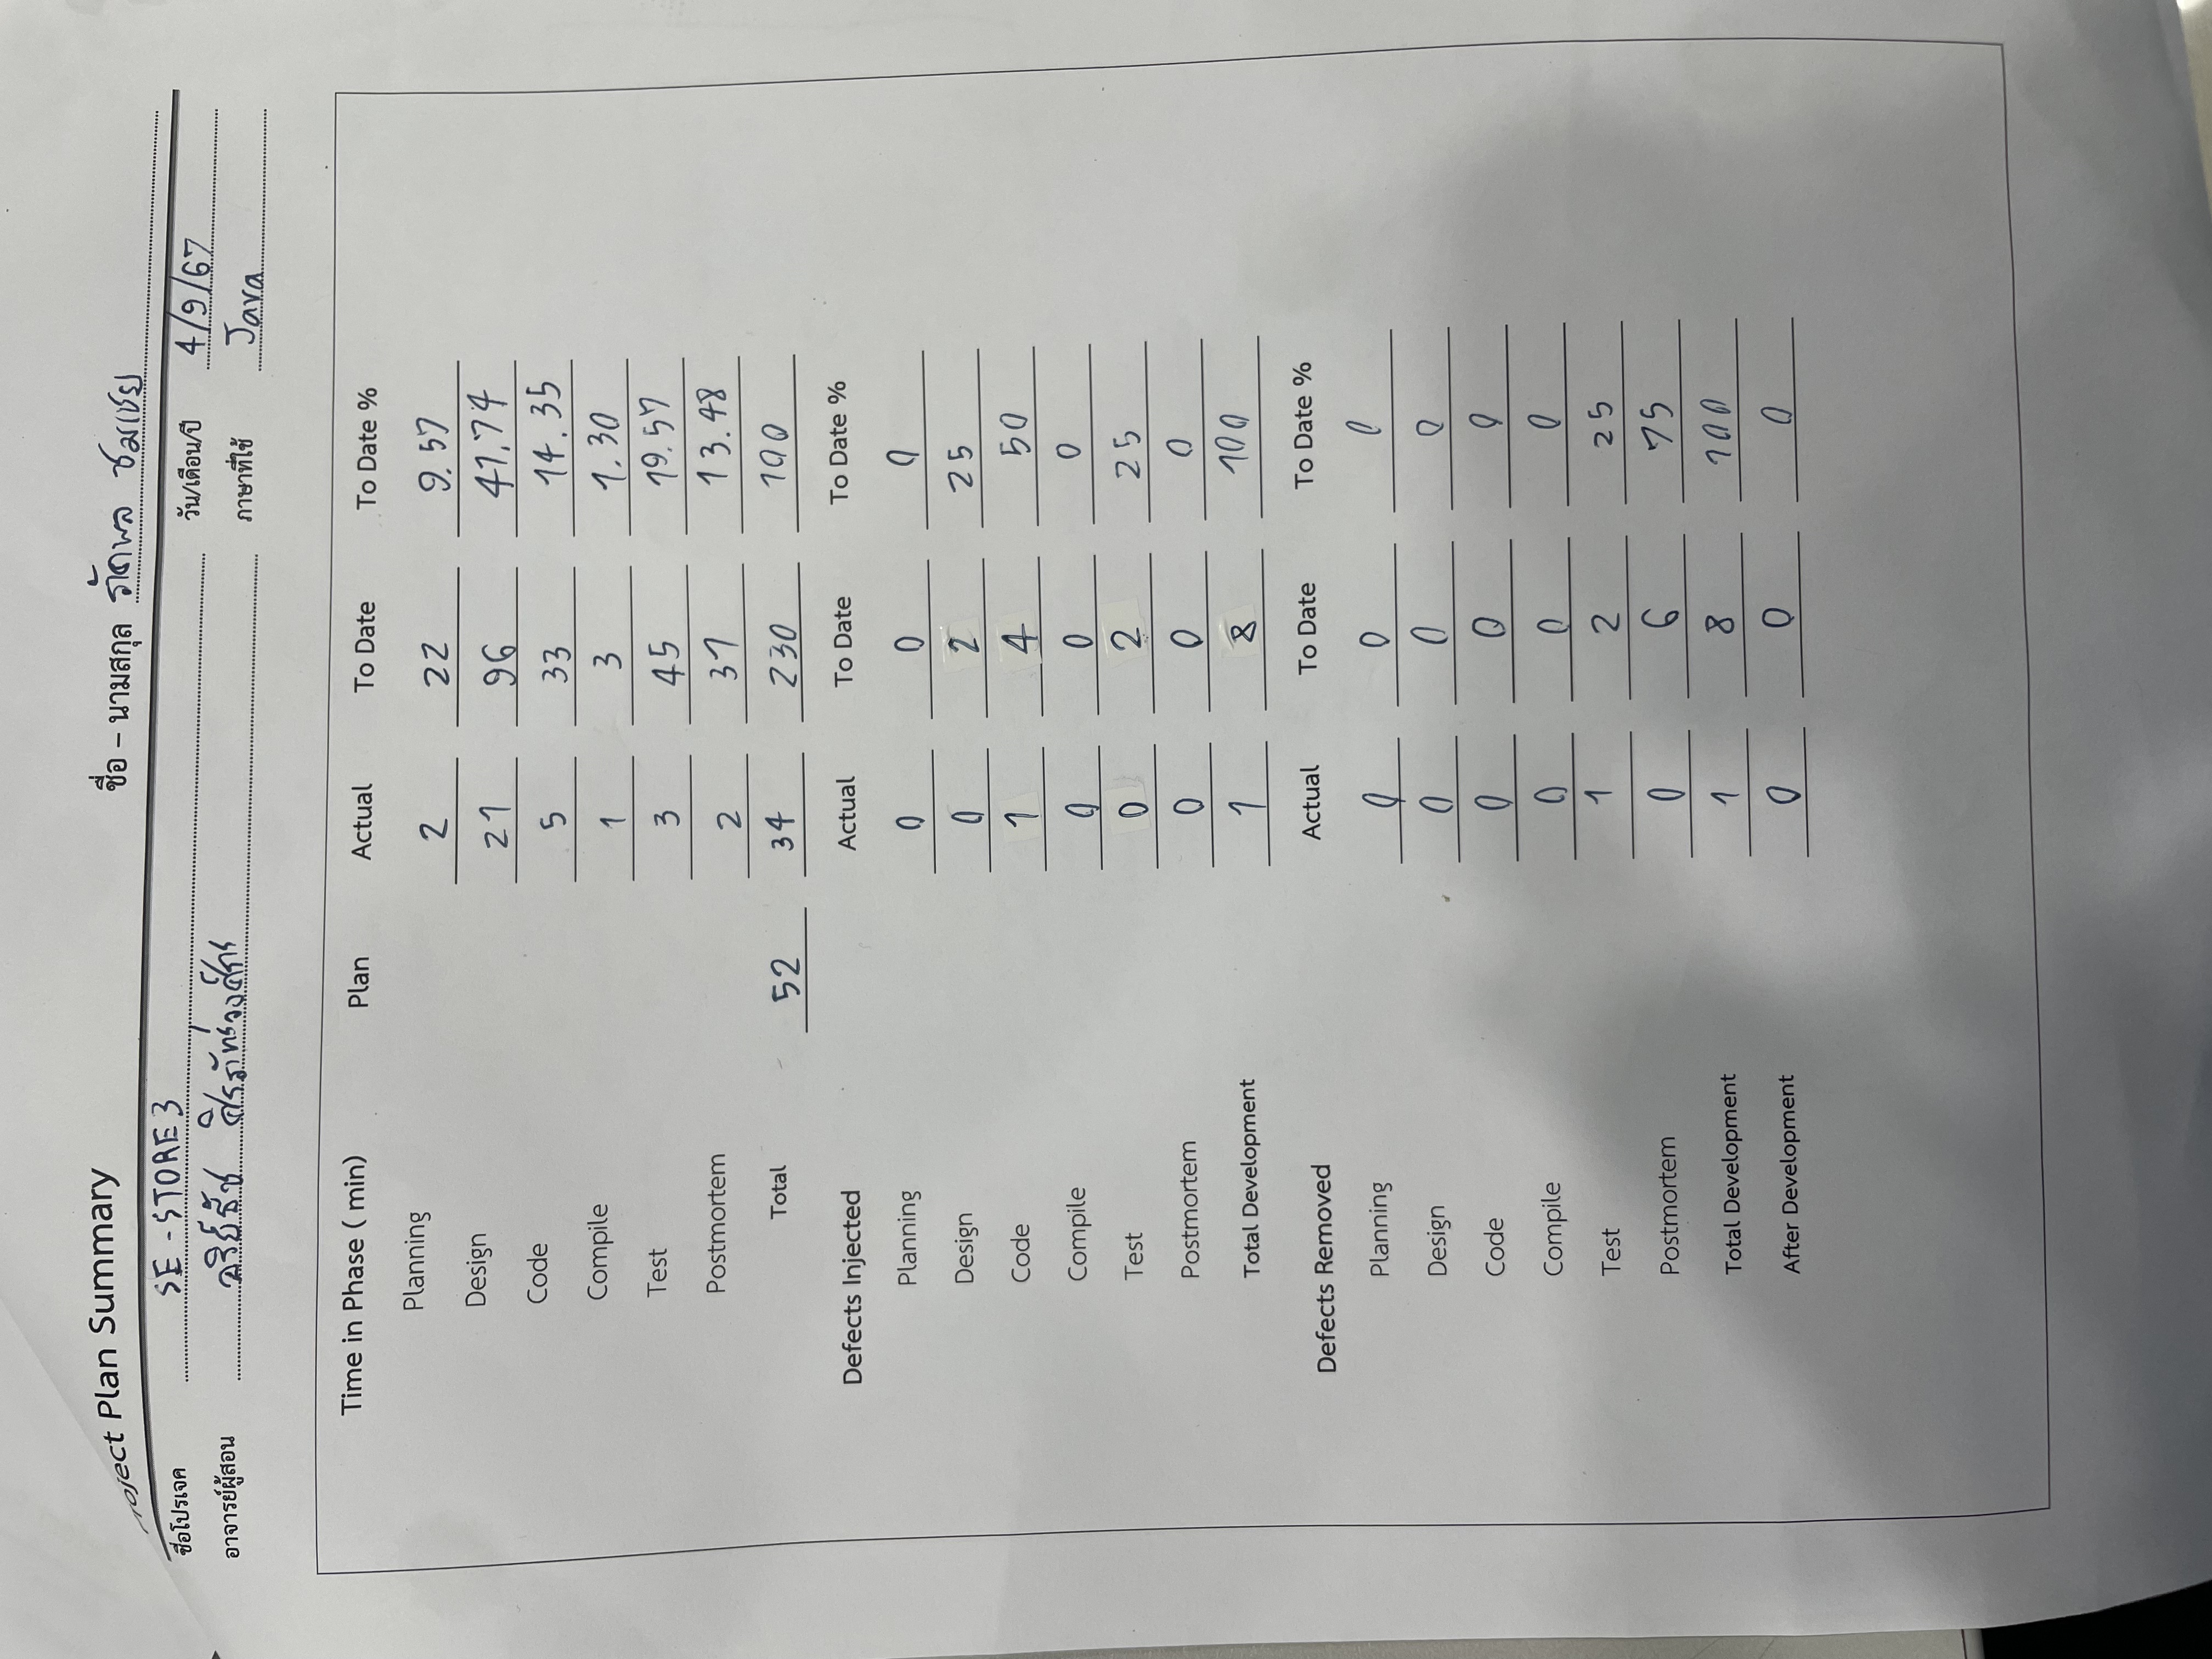 roject Plan Summary ชื่อ – นามสกุล
ชื่อโปรเจค SE-STORE3 วัน/เดือน/ปี 4/9/67
อาจารย์ผู้สอน ภาษาที่ใช้ Java
Time in Phase ( min) Plan Actual To Date To Date %
Planning 2 22 9.57
Design 21 96 41.74
Code 5 33 14.35
Compile 1 3 1.30
Test 3 45 19.57
Postmortem 2 31 13.48
Total 52 34 230 100
Defects Injected Actual To Date To Date %
Planning 0 0 0
Design 0 2 25
Code 1 4 50
Compile 0 0 0
Test 0 2 25
Postmortem 0 0 0
Total Development 1 8 100
Defects Removed Actual To Date To Date %
Planning 0 0 0
Design 0 0 0
Code 0 0 0
Compile 0 0 0
Test 1 2 25
Postmortem 0 6 75
Total Development 1 8 100
After Development 0 0 0